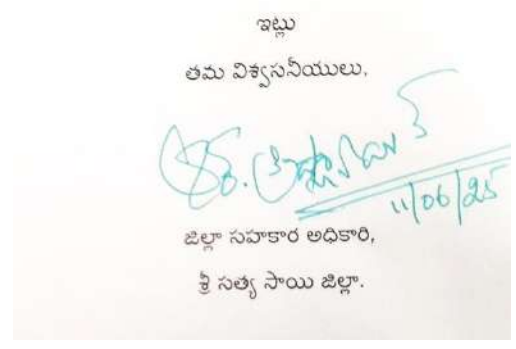 ఇట్లు
తమ విశ్వసనీయులు,
11/06/25
జిల్లా సహకార అధికారి,
శ్రీ సత్య సాయి జిల్లా.